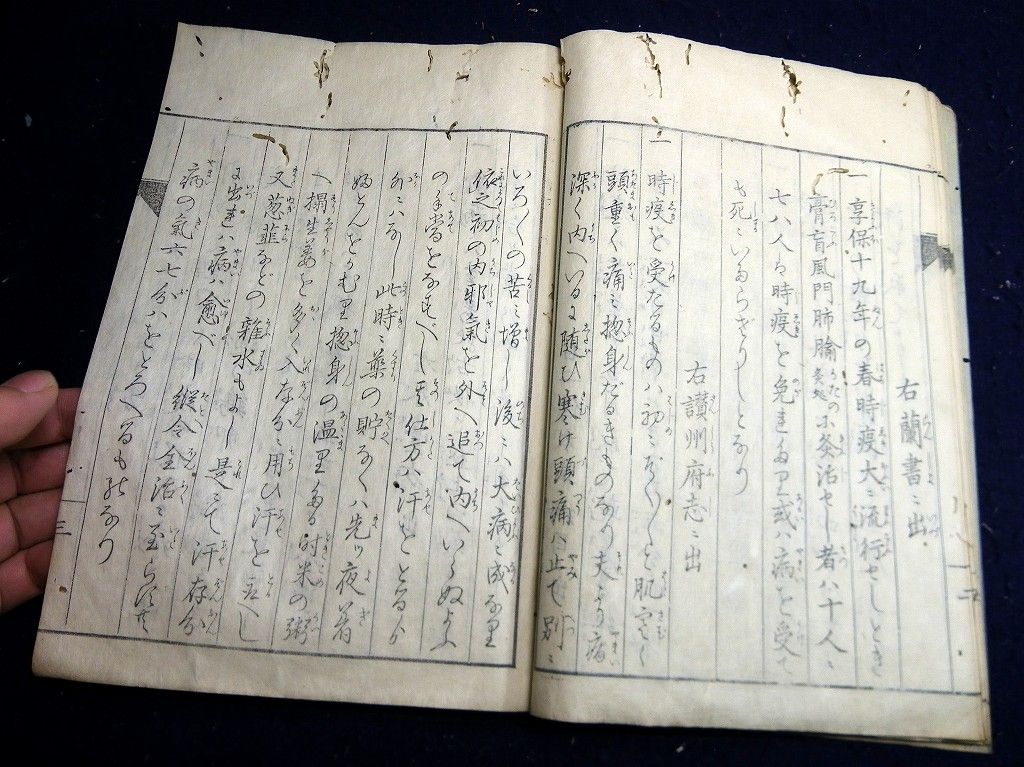 右蘭書ニ出
一 享保十九年の春時疫大ニ流行せしとき
膏肓風門肺腧灸処に灸治せし者ハ十人ニ
七八人ハ時疫を免れたり或ハ病を受て
も死にいたらざりしとなり
右讃州府志ニ出
一 時疫を受たるものハ初ニぞく〳〵と肌寒く
頭重く痛ミ惣身だるきものなり夫より病
深く内へいるに随ひ寒け頭痛ハ止て別ニ
いろ〳〵の苦ミ増し後ニハ大病ニ成なり
依之初の内邪氣を外へ追て内へいらぬよふ
の手當をなすべし其仕方ハ汗をとるより
外ニハなし此時ニ薬の貯なくハ先ツ夜着
ふとんをかむり惣身の温りたる時米の粥
へ搨生姜を多く入存分ニ用ひ汗を出べし
又葱韮などの雑水もよし是にて汗存分
に出れハ病ハ愈べし縦令全治ニ至らずも
病の氣六七分ハをとろへるものなり
三